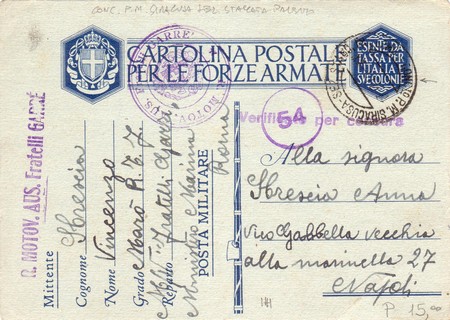 CONC. P.M. SIRACUSA SEZ. STACCATA PALERMO
CARTOLINA POSTALE
PER LE FORZE ARMATE
ESENTE DA
TASSA PER
L'ITALIA E
SUE COLONIE
P.M. SIRACUSA
R. MOTOV. AUS.
54
Verifi per censura
R. MOTOV. AUS. Fratelli GARRÉ
Mittente
Cognome Sbrescia
Nome Vincenzo
Grado Marò R.E.T.
Reparto Fratelli Garrè
Ministero Marina
Roma
POSTA MILITARE
Alla signora
Sbrescia Anna
Vico Gabbella vecchia
alla marinella 27
Napoli
P 15,00